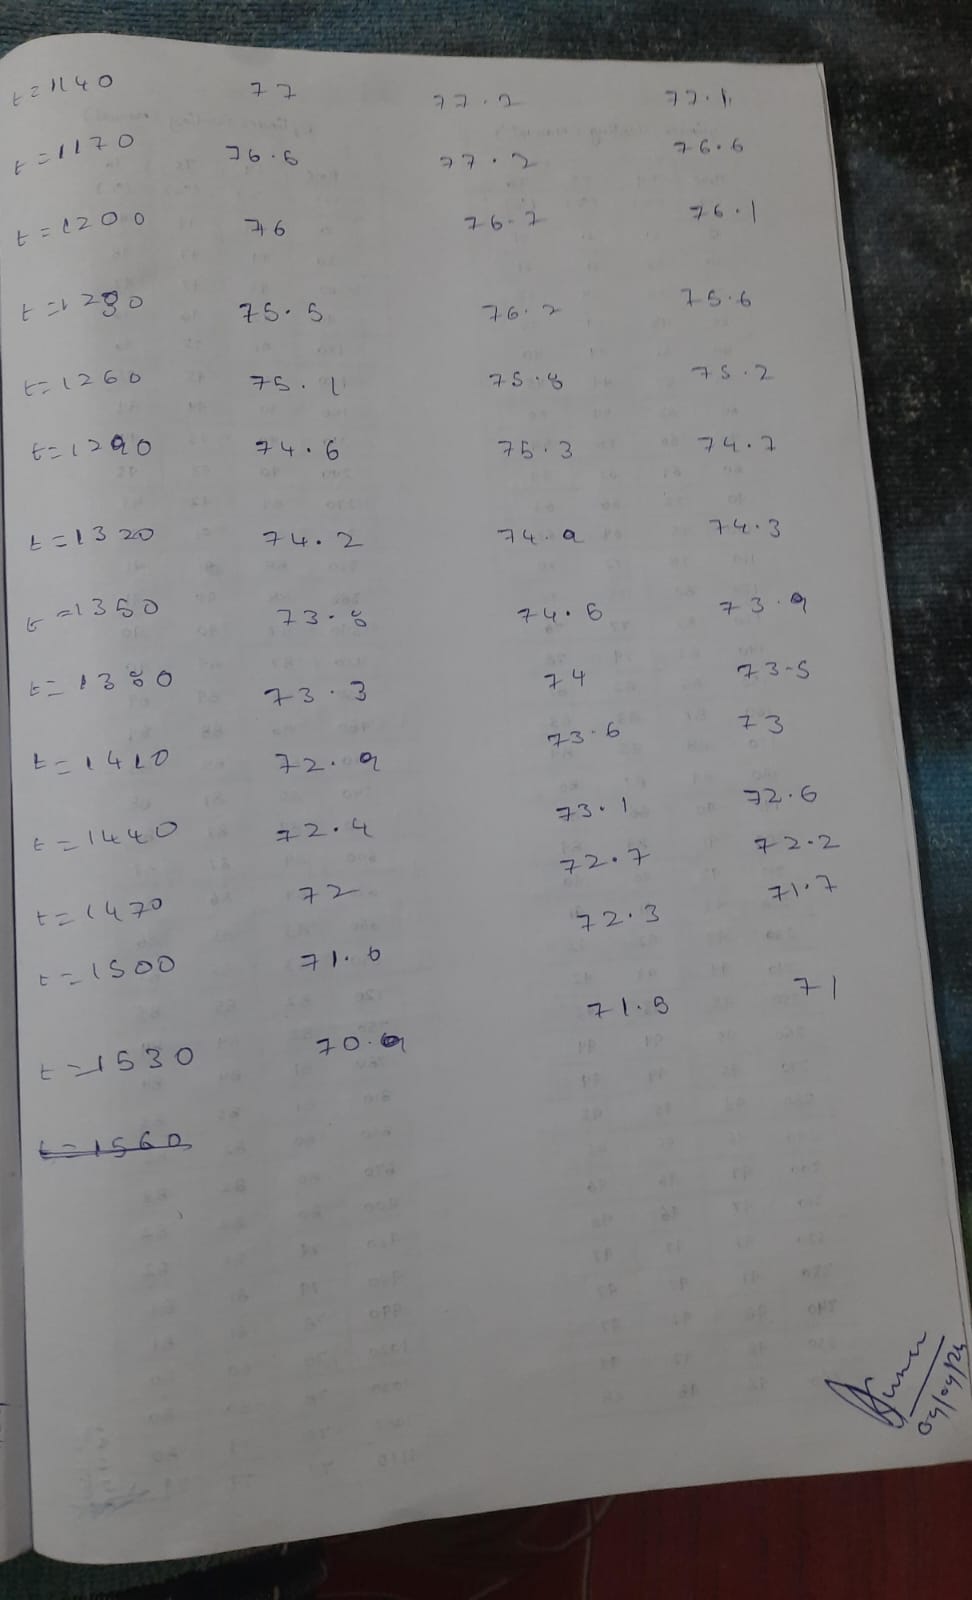 t=1140 77 77.2 77.1
t=1170 76.6 77.2 76.6
t=1200 76 76.7 76.1
t=1230 75.5 76.2 75.6
t=1260 75.1 75.8 75.2
t=1290 74.6 75.3 74.7
t=1320 74.2 74.9 74.3
t=1350 73.8 74.6 73.9
t=1380 73.3 74 73.5
t=1410 72.9 73.6 73
t=1440 72.4 73.1 72.6
t=1470 72 72.7 72.2
t=1500 71.6 72.3 71.7
t=1530 70.9 71.5 71
t=1560
04/04/24